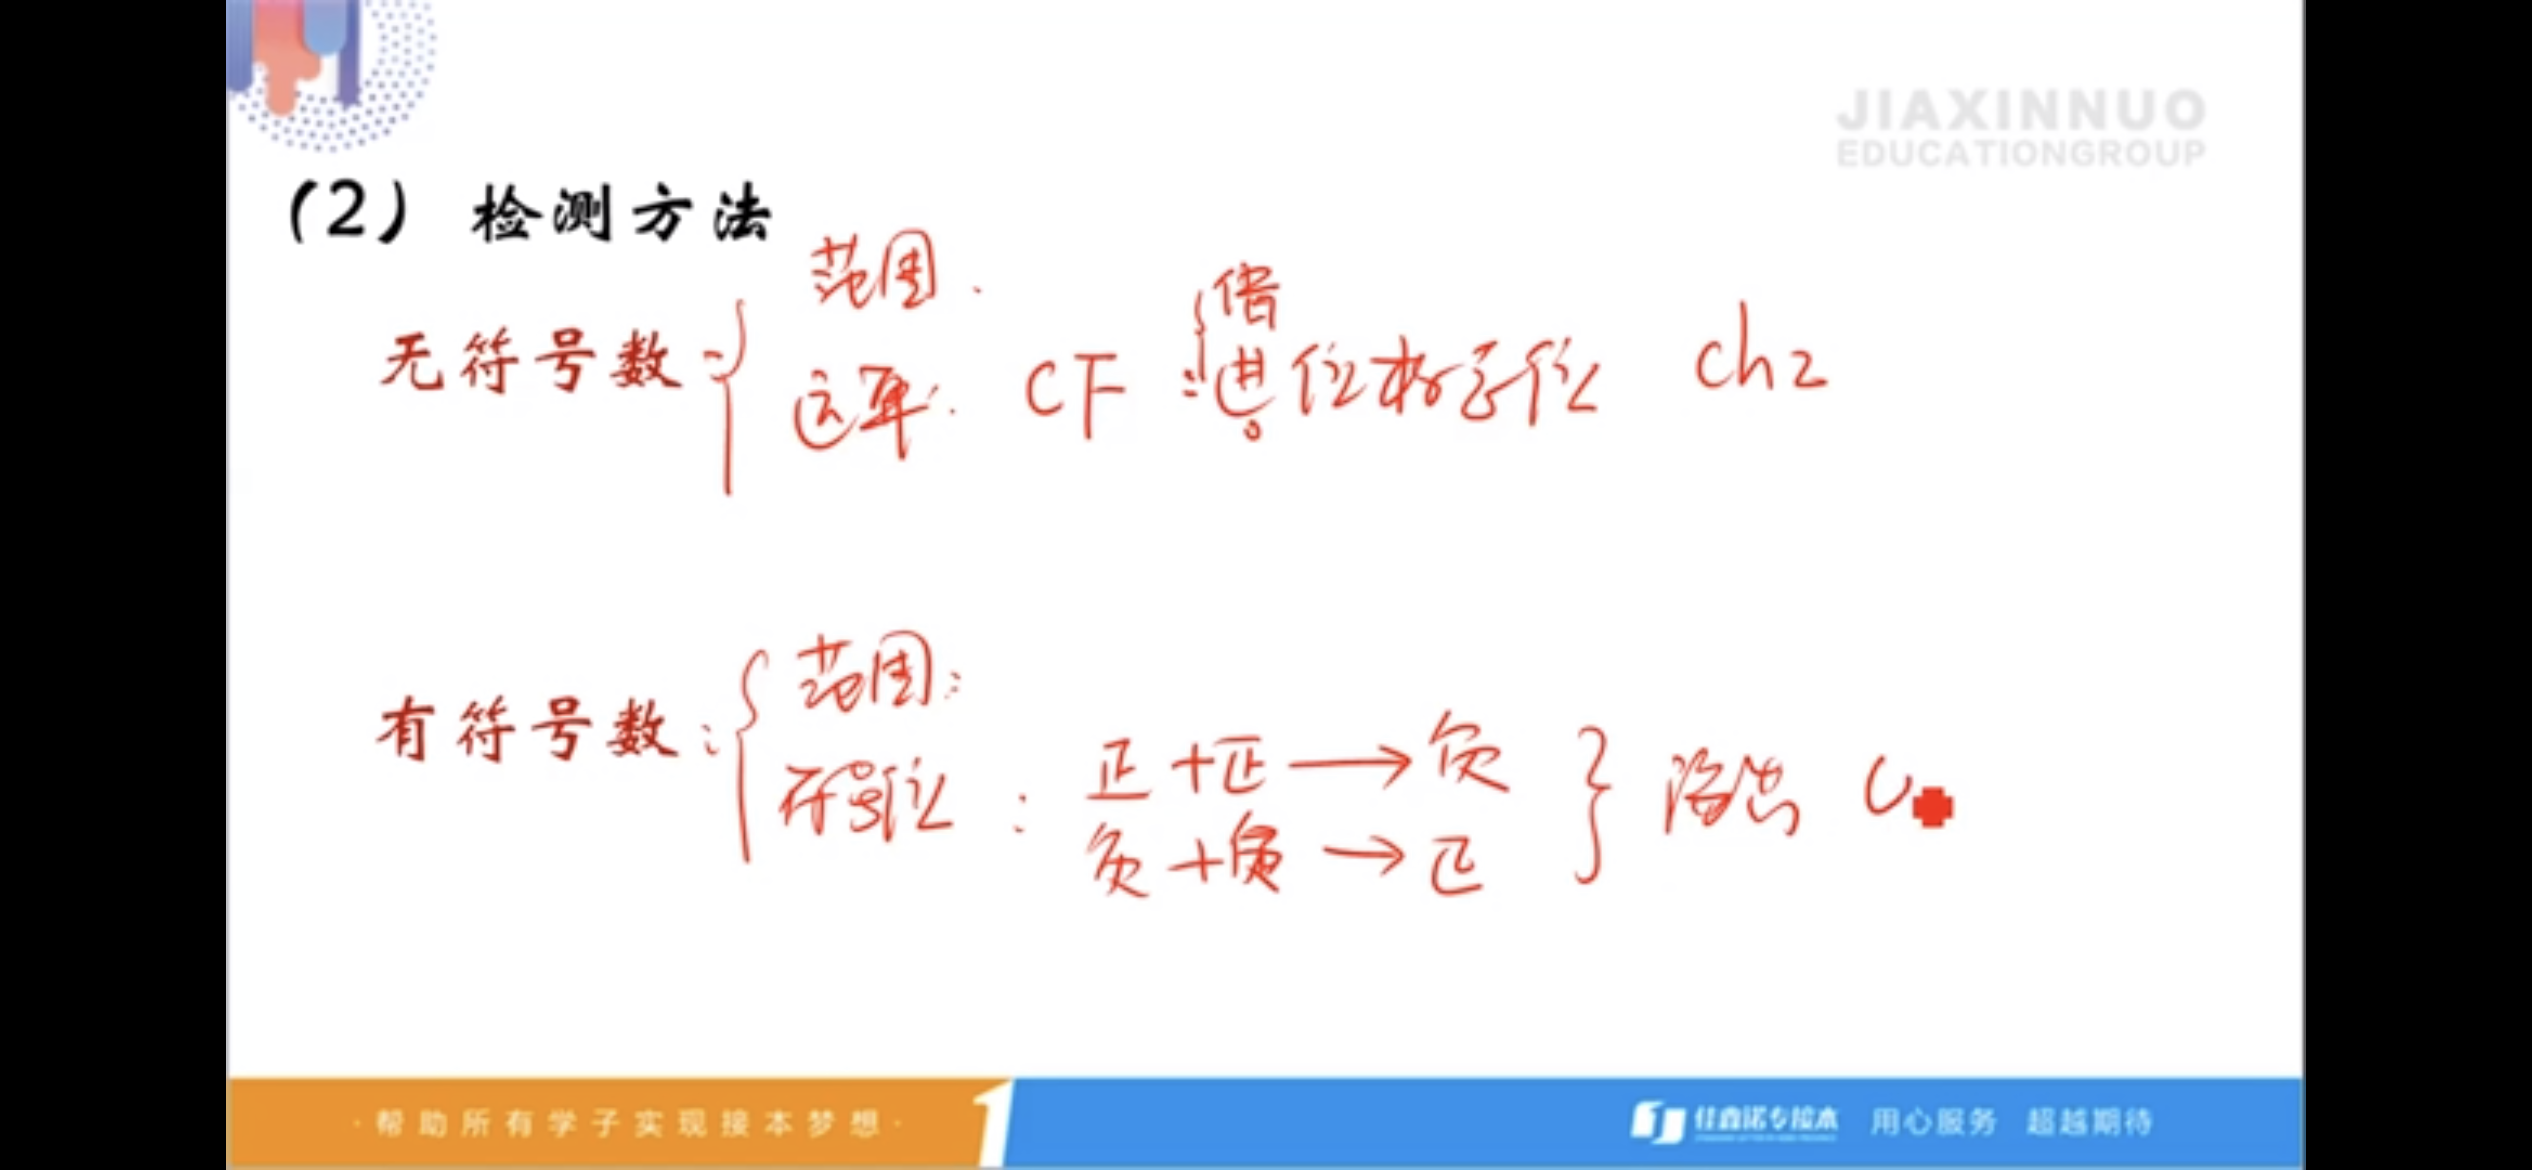 JIAXINNUO
EDUCATIONGROUP
(2) 检测方法
范围.
无符号数:
借
运算: CF :进位标志位 ch2
有符号数:
范围:
符号位:
正+正→负
负+负→正
溢出
·帮助所有学子实现接本梦想·
1
佳鑫诺专接本 用心服务 超越期待